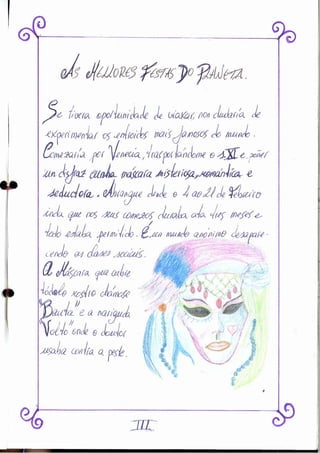 As MELLORES FESTAS DO PLANETA.
Se tivera oportunidade de viaxar, non dudaría de
experimentar os entroidos mais famosos do mundo.
Comezaría por Venecia, trasportándome o s.XI e poñer
un disfraz cunha máscara misteriosa, romántica e
seductora. Abrangue dende o 4 ao 21 de Febreiro
inda que nos seus comezos duraba ata tres meses e
todo estaba permitido. É un mundo anónimo desapare-
cendo as clases sociais.
A Máscara que cubre
todo o rostro chámase
"Bauta" e a nariguda
"Volto" onde o doutor
usaba contra a peste.
III